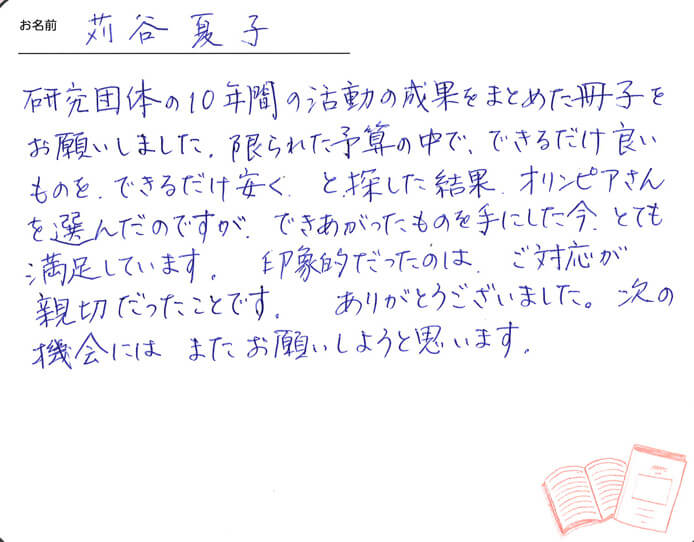 お名前 苅谷 夏子
研究団体の10年間の活動の成果をまとめた冊子を
お願いしました。限られた予算の中で、できるだけ良い
ものを、できるだけ安く、と探した結果、オリンピアさん
を選んだのですが、できあがったものを手にした今、とても
満足しています。 印象的だったのは、ご対応が
親切だったことです。 ありがとうございました。次の
機会には またお願いしようと思います。